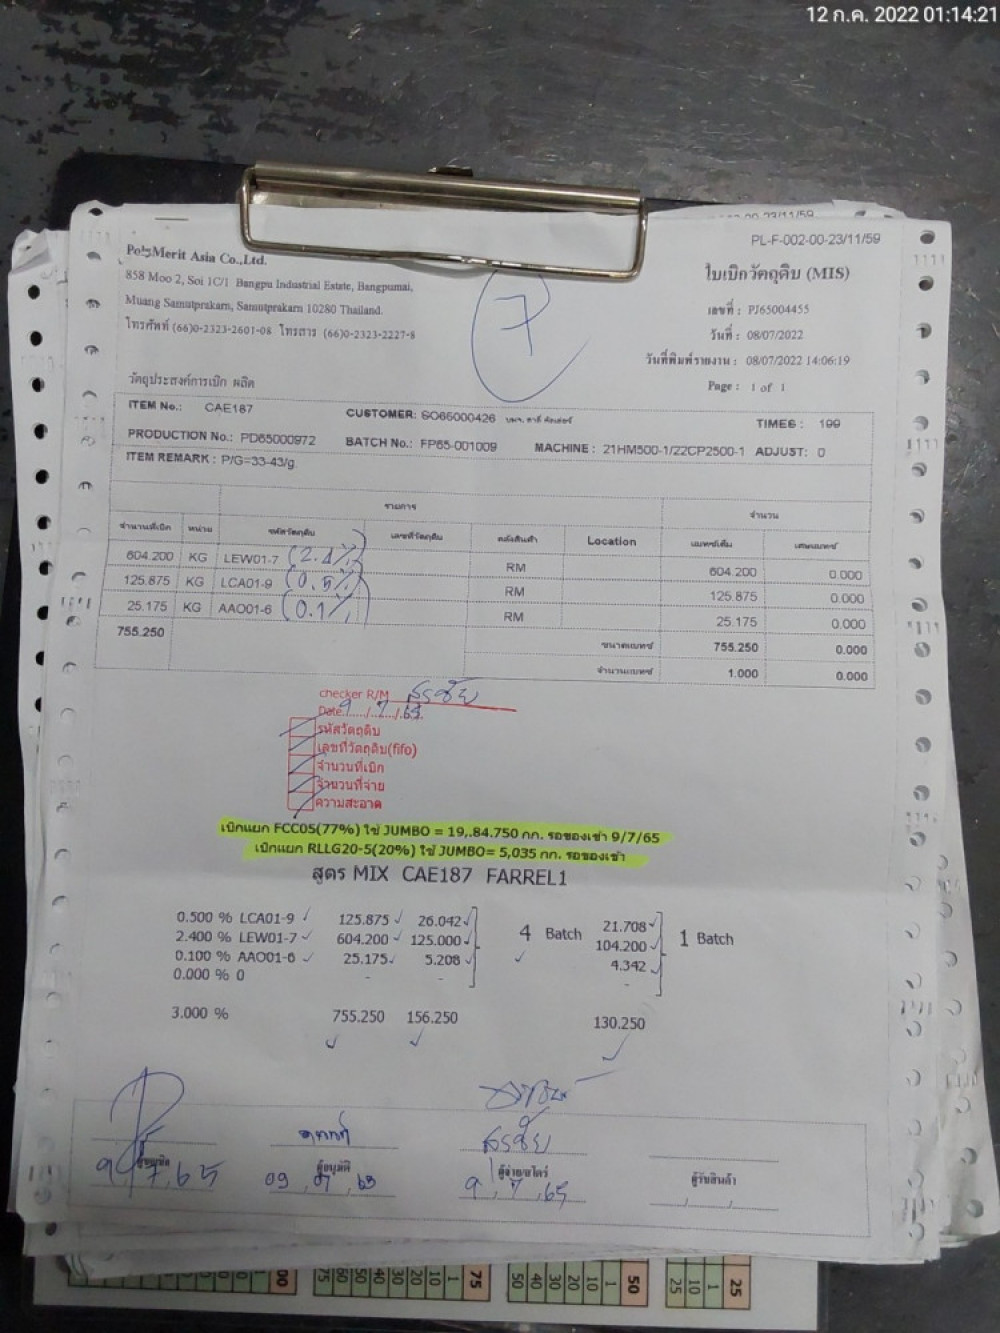 12 ก.ค. 2022 01:14:21
PL-F-002-00-23/11/59
PolyMerit Asia Co.,Ltd.
858 Moo 2, Soi 1C/1 Bangpu Industrial Estate, Bangpumai,
Muang Samutprakarn, Samutprakarn 10280 Thailand.
โทรศัพท์ (66)0-2323-2601-08 โทรสาร (66)0-2323-2227-8
7
ใบเบิกวัตถุดิบ (MIS)
เลขที่ : PJ65004455
วันที่ : 08/07/2022
วันที่พิมพ์รายงาน : 08/07/2022 14:06:19
Page : 1 of 1
วัตถุประสงค์การเบิก ผลิต
ITEM No.: CAE187 CUSTOMER: SO65000426 TIMES : 199
PRODUCTION No.: PD65000972 BATCH No.: FP65-001009 MACHINE : 21HM500-1/22CP2500-1 ADJUST: 0
ITEM REMARK : P/G=33-43/g.
รายการ จำนวน
จำนวนที่เบิก หน่วย รหัสวัตถุดิบ เลขที่วัตถุดิบ คลังสินค้า Location แบทช์เต็ม เศษแบทช์
604.200 KG LEW01-7 (2.4%) RM 604.200 0.000
125.875 KG LCA01-9 (0.5%) RM 125.875 0.000
25.175 KG AAO01-6 (0.1%) RM 25.175 0.000
755.250 ขนาดแบทช์ 755.250 0.000
จำนวนแบทช์ 1.000 0.000
checker R/M สรชัย
Date 9/7/65
รหัสวัตถุดิบ
เลขที่วัตถุดิบ(fifo)
จำนวนที่เบิก
จำนวนที่จ่าย
ความสะอาด
เบิกแยก FCC05(77%) ใช้ JUMBO = 19,.84.750 กก. รอของเข้า 9/7/65
เบิกแยก RLLG20-5(20%) ใช้ JUMBO= 5,035 กก. รอของเข้า
สูตร MIX CAE187 FARREL1
0.500 % LCA01-9 125.875 26.042 21.708
2.400 % LEW01-7 604.200 125.000 4 Batch 104.200 1 Batch
0.100 % AAO01-6 25.175 5.208 4.342
0.000 % 0 - - -
3.000 % 755.250 156.250 130.250
สรชัย
ผู้อนุมัติ ผู้จ่าย/สโตร์ ผู้รับสินค้า
9, 7, 65 09, 07, 65 9, 7, 65
00 75 60 50 40 30 20 10 1 75 50 40 30 20 10 1 50 25 10 1 25